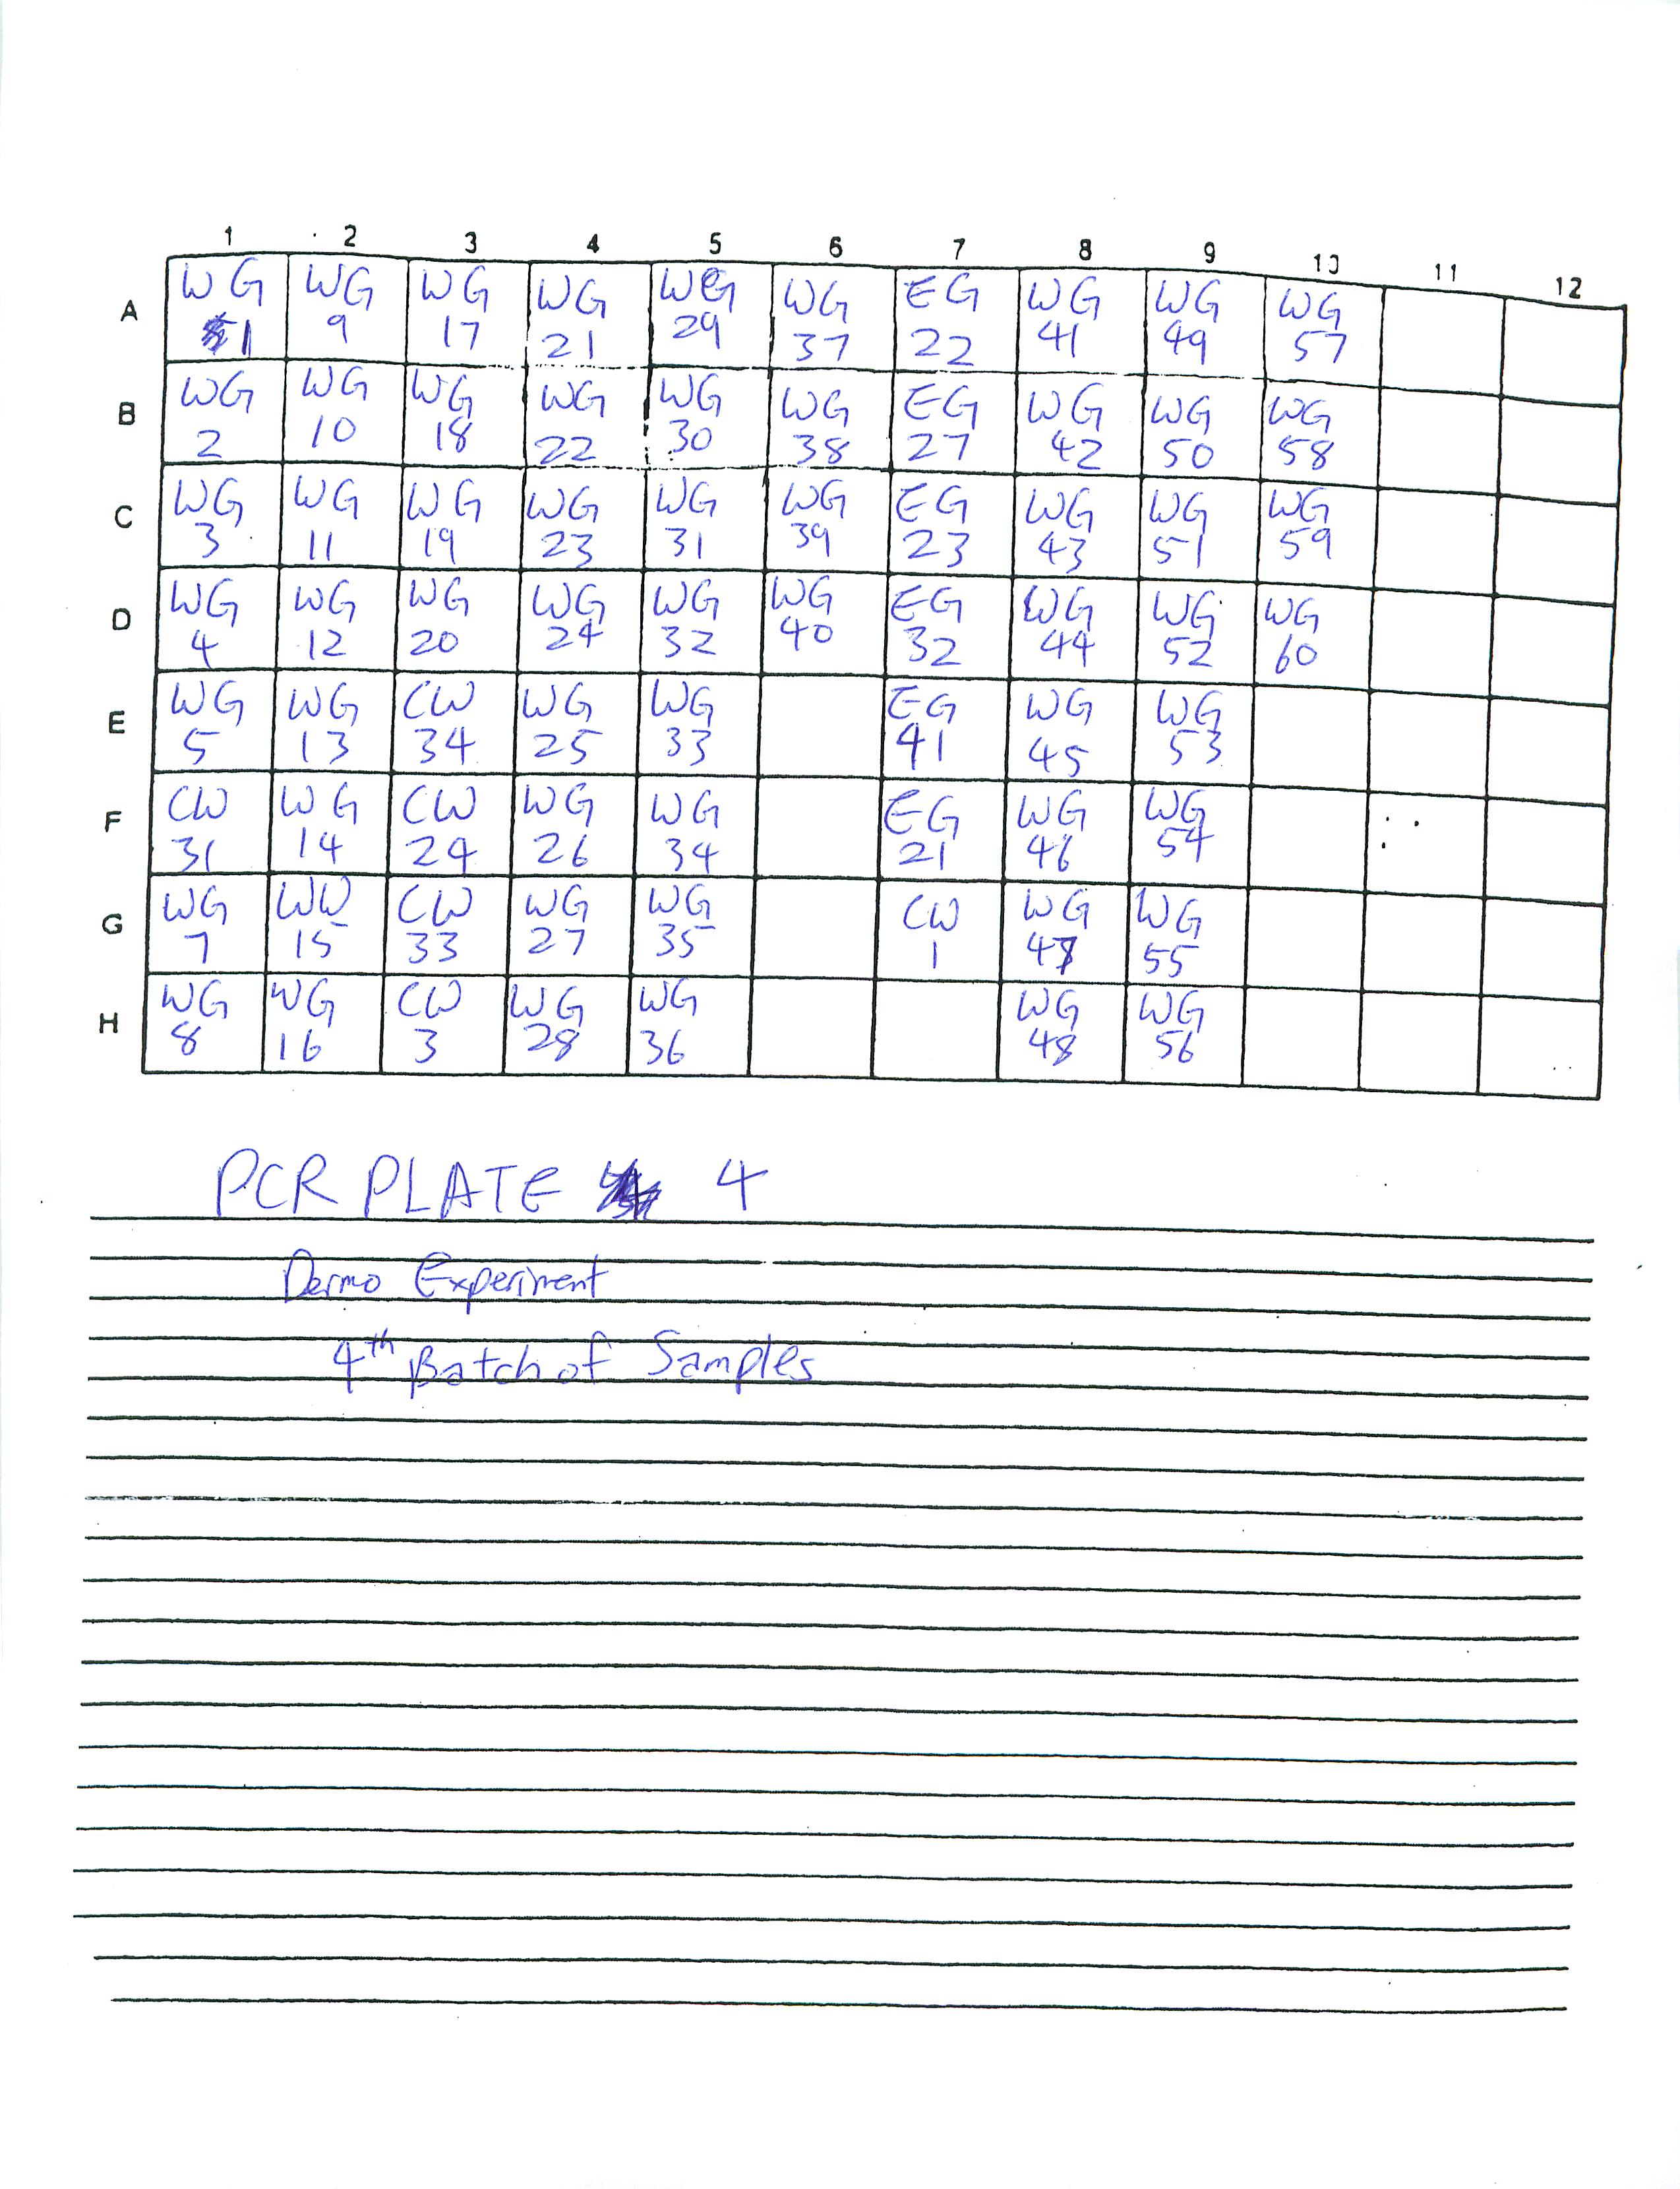 1 2 3 4 5 6 7 8 9 10 11 12
A
WG WG WG WG WG WG EG WG WG WG
1 9 17 21 29 37 22 41 49 57
B
WG WG WG WG WG WG EG WG WG WG
2 10 18 22 30 38 27 42 50 58
C
WG WG WG WG WG WG EG WG WG WG
3 11 19 23 31 39 23 43 51 59
D
WG WG WG WG WG WG EG WG WG WG
4 12 20 24 32 40 32 44 52 60
E
WG WG CW WG WG EG WG WG
5 13 34 25 33 41 45 53
F
CW WG CW WG WG EG WG WG
31 14 24 26 34 21 46 54
G
WG WW CW WG WG CW WG WG
7 15 33 27 35 1 47 55
H
WG WG CW WG WG WG WG
8 16 3 28 36 48 56
PCR PLATE 4
Dermo Experiment
4th Batch of Samples